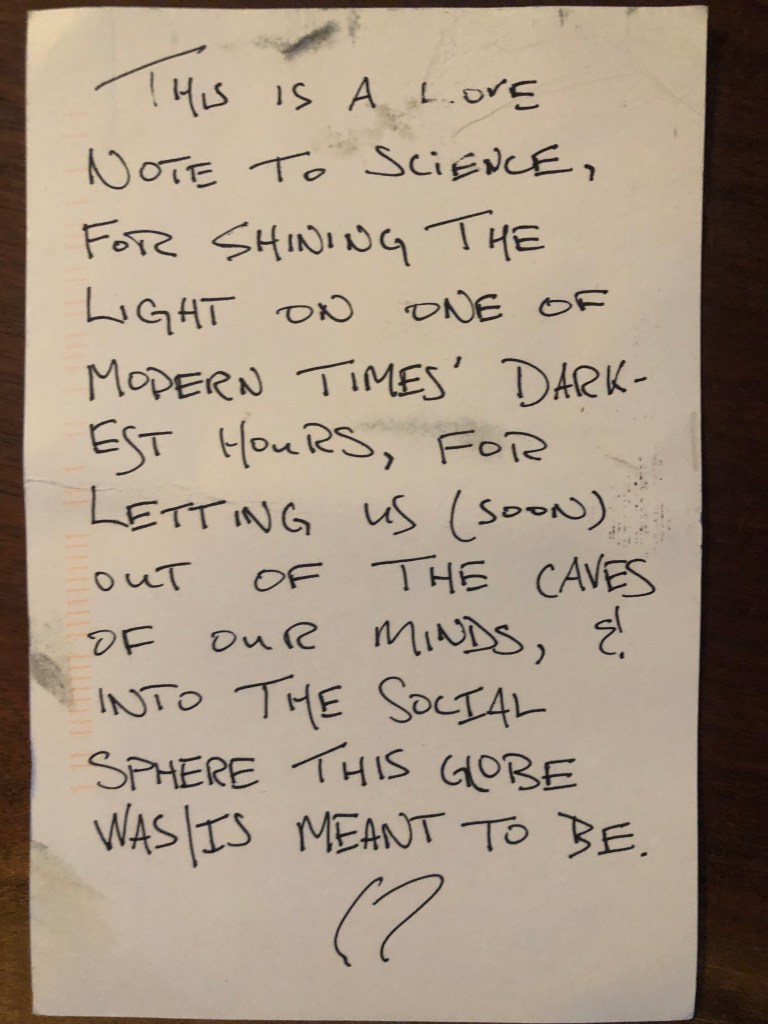 THIS IS A LOVE
NOTE TO SCIENCE,
FOR SHINING THE
LIGHT ON ONE OF
MODERN TIMES' DARK-
EST HOURS, FOR
LETTING US (SOON)
OUT OF THE CAVES
OF OUR MINDS, &
INTO THE SOCIAL
SPHERE THIS GLOBE
WAS/IS MEANT TO BE.